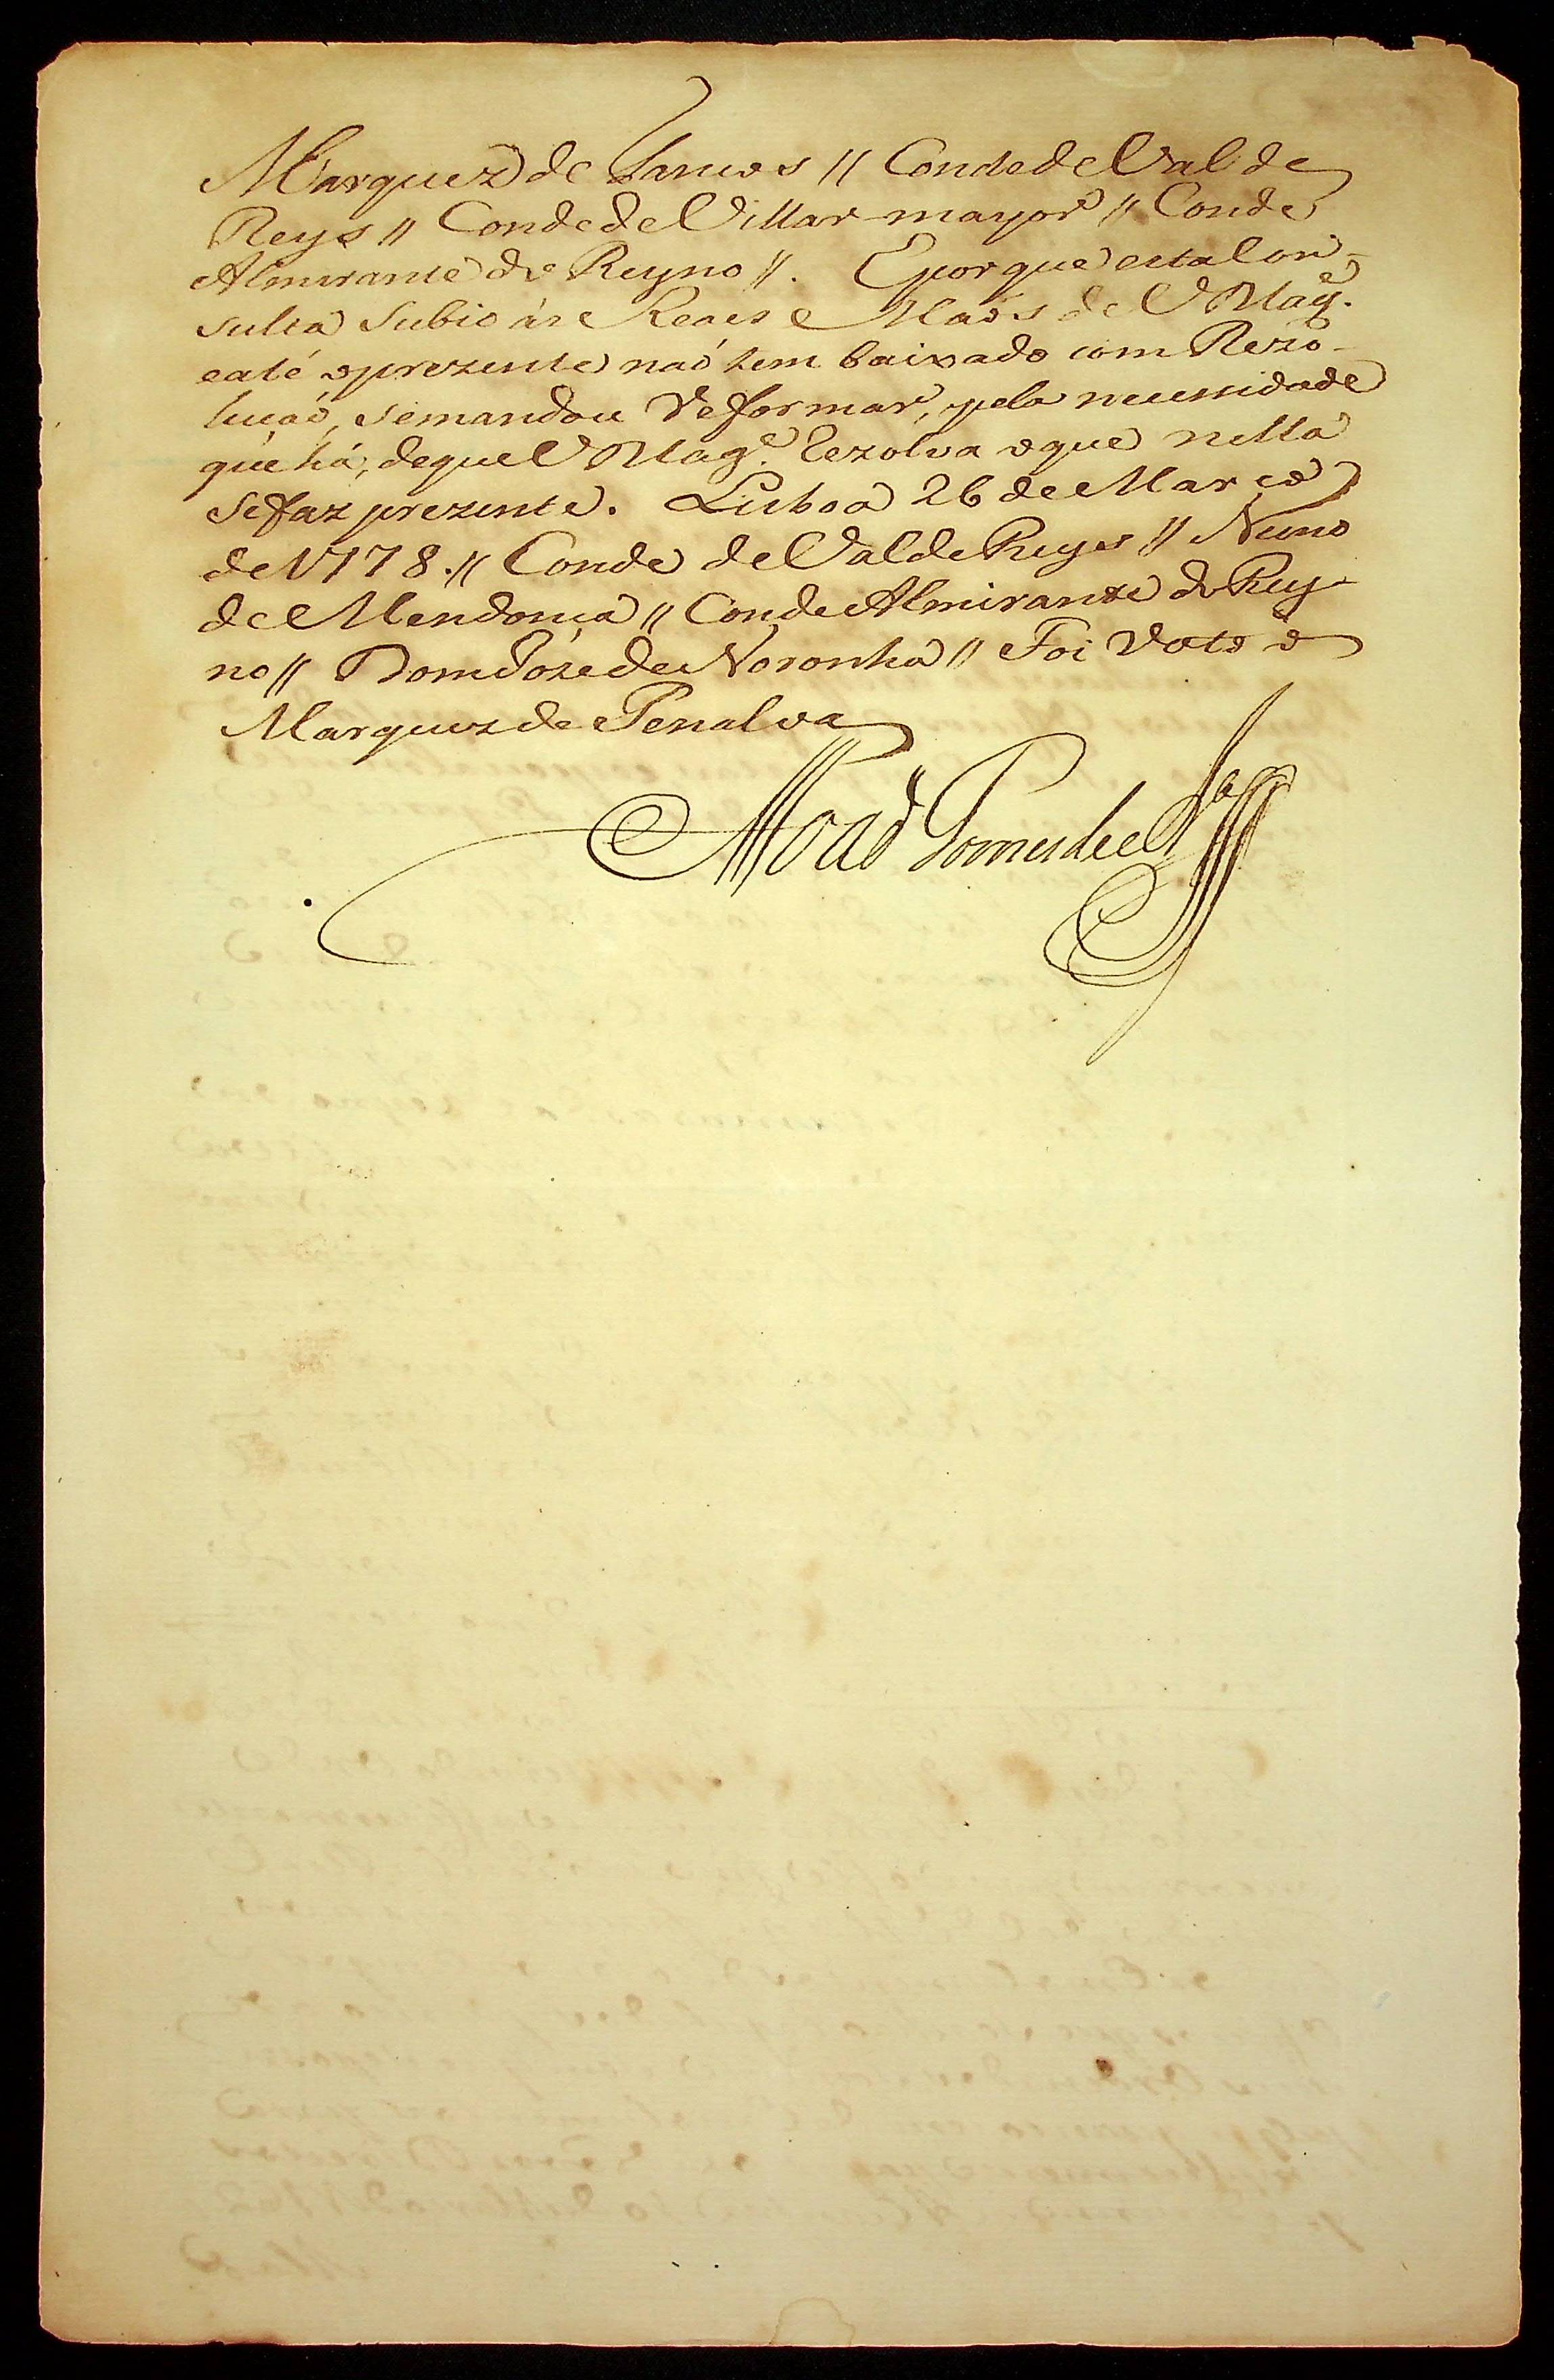 Marquez de Tancos // Conde de Val de
Reys // Conde de Villar-mayor // Conde
Almirante do Reyno //. E porque esta Con-
sulta Subio ás Reaes Maõs de V Mag.e
e até o prezente naõ tem baixado com Rezo-
luçaõ, se mandou Reformar, pela necessidade
que há, de que V Mag.e Rezolva o que nella
se faz prezente. Lisboa 26 de Março
de 1778 // Conde de Val de Reys // Nuno
de Mendonça // Conde Almirante do Rey-
no // Dom Joze de Noronha // Foi Voto o
Marquez de Penalva
Joaõ Gomes de